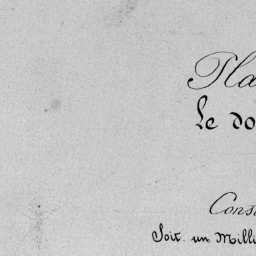 Pla
Le do
Cons
Soit un Milli